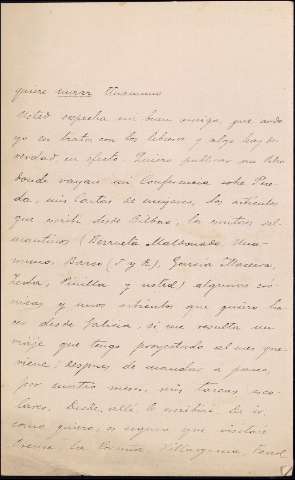 quiere mirar Unamuno
Usted sospecha mi buen amigo, que ando
yo en tratos con los libros y algo hay de
verdad, en efecto. Quiero publicar un libro
donde vayan mi Conferencia sobre Pere-
da, mis Cartas de mujeres, los artículos
que escribí desde Bilbao, los escritores sal-
mantinos (Berrueta, Maldonado, Una-
muno, Barco (J. y R.), García Maceira,
Zeda, Pinilla y usted) algunas cró-
nicas y unos artículos que quiero ha-
cer desde Galicia, si me resulta un
viaje que tengo proyectado al mes que
viene, después de mandar a paseo,
por cuatro meses, mis tareas esco-
lares. Desde allí le escribiré. De ir,
como quiero, es seguro que visitaré
Orense, La Coruña, Villagarcía,